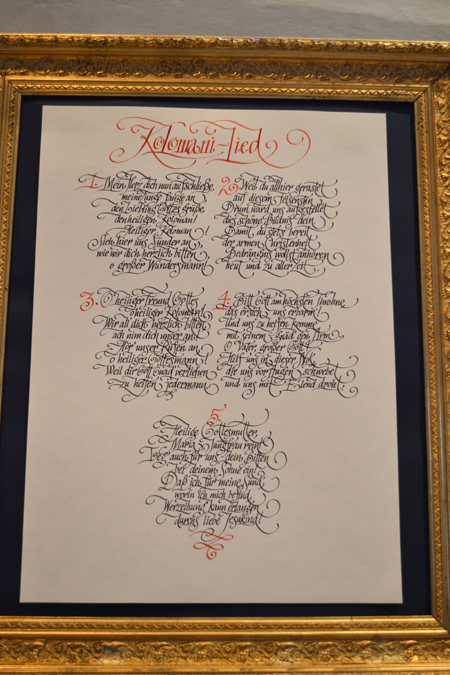 Kolomani-Lied
1. Mein Herz dich nun aufschließe,
meine Junge Preise an
den Liebling Gottes grüße,
den heiligen Koloman!
Heiliger Koloman!
Sieh hier uns Sünder an
wie wir dich herzlich bitten
o großer Wundersmann!
2. Weil du allhier gerastet
auf diesem Felsenstein
Drum ward uns aufgestellt
dies schöne Bildnis dein
Damit du stets bereit
der armen Christenheit
Bedrängnis wollst anhören
heut und zu aller Zeit.
3. O heiliger Freund Gottes
o heiliger Koloman!
Wir all dich herzlich bitten
ach nimm dich unser an
Hör unser Rufen an
o heiliger Gottesmann!
Weil dir Gott Gnad verliehen
zu helfen jedermann
4. Bitt Gott am höchsten Throne
das er sich uns erbarm
und uns zu helfen komme
mit seinem Gnad gen Arm
O Vater großer Gott
Hilf uns in dieser Not
die uns vor Augen schwebet
und uns mit Elend droht
5.
Heilige Gottesmutter,
Maria Jungfrau rein!
Leg auch für uns dein Bitten
bei deinem Sohne ein!
Daß ich für meine Sünd
worin ich mich befind
Verzeihung kann erlangen
durchs liebe Jesukind!